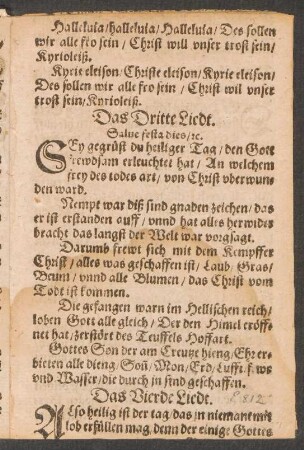 Halleluia/halleluia/Halleluia/Des sollen
wir alle fro sein/ Christ will vnser trost sein/
Kyrioleiß.
Kyrie eleison/Christe eleison/Kyrie eleison/
Des sollen wir alle fro sein/ Christ wil vnser
trost sein/Kyrioleiß.
Das Dritte Liedt.
Salue festa dies/ꝛc.
SEy gegrüst du heiliger Tag/ den Gott
frewdsam erleuchtet hat/ An welchem
frey des todes art/ von Christ vberwun-
den ward.
Nempt war diß sind gnaden zeichen/das
er ist erstanden auff/ vnnd hat alles herwider
bracht das langst der Welt war vorgsagt.
Darumb frewt sich mit dem Kempffer
Christ/alles was geschaffen ist/ Laub/ Gras/
Beum/vnnd alle Blumen/ das Christ vom
Todt ist kommen.
Die gefangen warn im Hellischen reich/
loben Gott alle gleich/ Der den Himel eröff-
net hat/zerstört des Teuffels Hoffart.
Gottes Son der am Creutze hieng/Ehr er-
bieten alle dieng/Soñ/Mon/Erd/Lufft.
vnd Wasser/die durch in sind geschaffen.
Das Vierde Liedt.
ALso heilig ist der tag/das in niemant mit
lob erfüllen mag/denn der einige Gottes